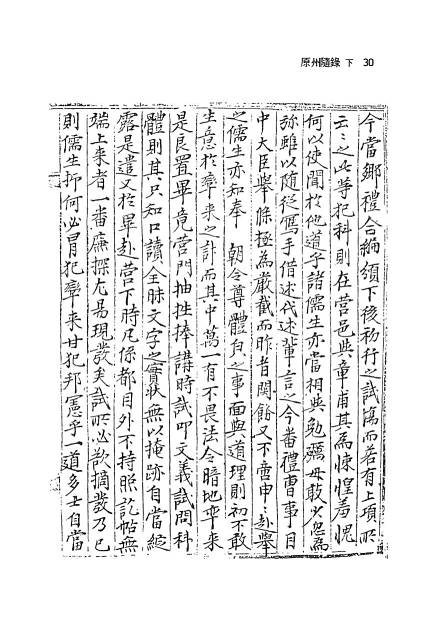 原州隨錄 下 30
今當鄕禮合編頒下後初行之試塲而若有上項所
云云之此等犯科則在營邑與章甫其爲悚惶羞愧
何以使聞於他道乎諸儒生亦當相與勉勵毋敢少忽爲
弥雖以隨從寫手借述代述輩言之今番禮曹事目
中大臣擧條極爲嚴截而昨昔関飭又不啻申申赴擧
之儒生亦知奉 朝令尊體自之事面與道理則初不敢
生意於率來之計而其中萬一有不畏法令暗地率來
是良置畢竟營門抽栍捧講時試叩文義試問科
體則其只知口讀全昧文字之實狀無以掩跡自當綻
露是遣又於畢赴營下時凡係都目外不持照訖帖無
端上來者一番廉探尤易現發矣試所必欲摘發乃已
則儒生抑何必冒犯率來甘犯邦憲乎一道多士自當